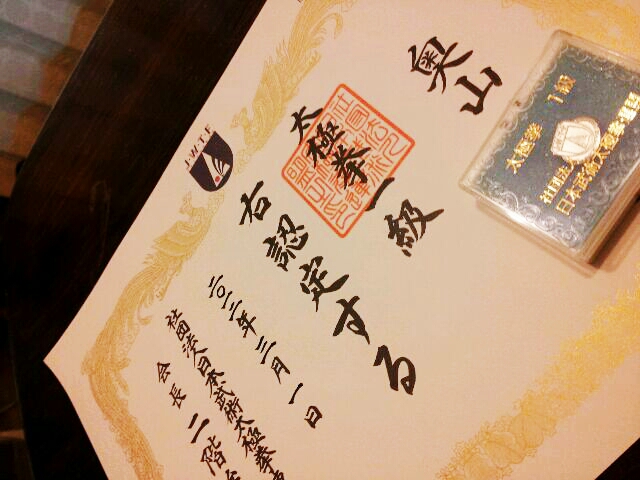 奥山
太極拳一級
右認定する
二〇一二年三月一日
社団法人日本武術太極拳
会長 二階
J.W.T.F
太極拳 1級
社団法人
日本武術太極拳連盟